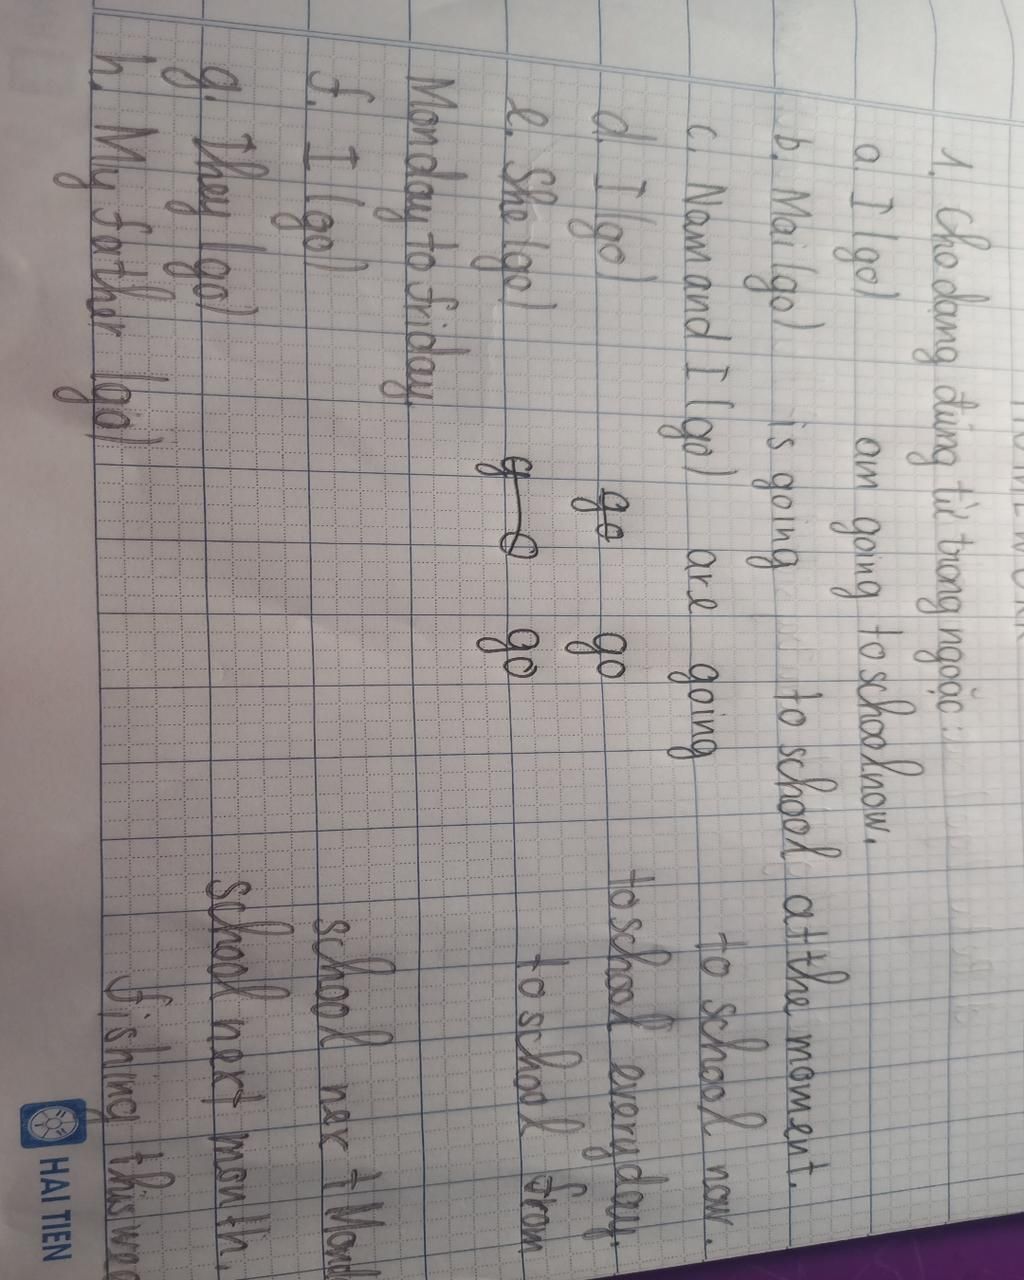 1. Cho dang đúng từ trong ngoặc:
a. I (go) am going to school now.
b. Mai (go) is going to school at the moment.
c. Nam and I (go) are going to school now.
d. I (go) go go to school every day.
e. She (go) go to school from
Monday to friday.
f. I (go) school next
g. They (go) school next month.
h. My father (go) fishing this
HAI TIEN